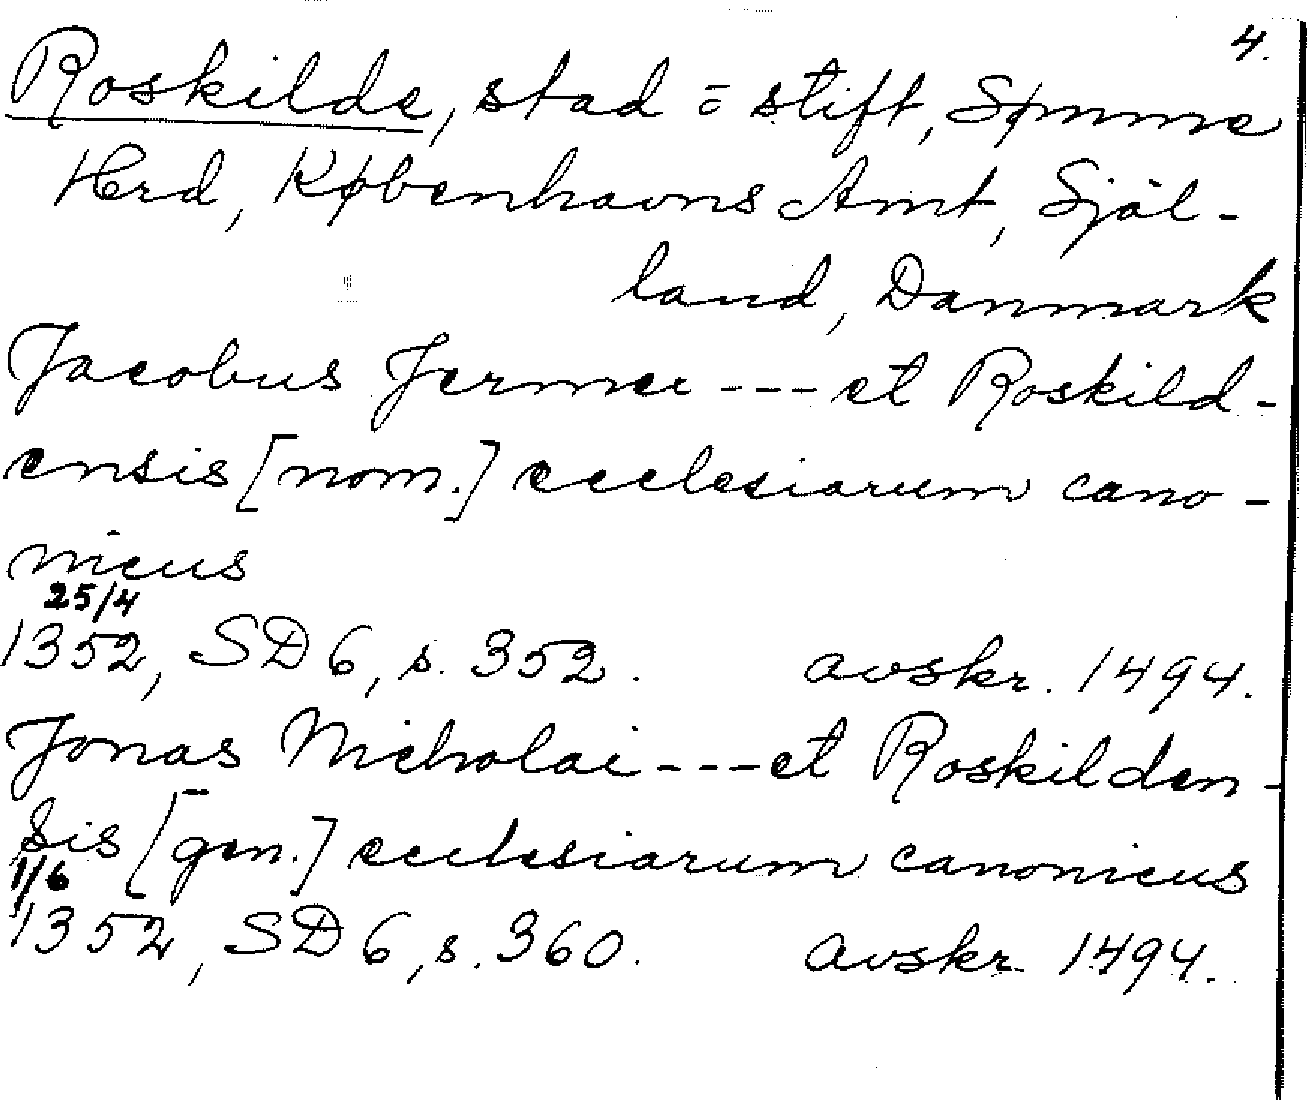 4.
Roskilde, stad = stift, Sømme
Hrd, Københavns Amt, Själ-
land, Danmark
Jacobus Jermei --- et Roskild-
ensis [nom.] ecclesiarum cano-
nicus
25/4
1352, SD 6, s. 352. avskr. 1494.
Jonas Nicholai --- et Roskilden-
sis [gen.] ecclesiarum canonicus
1/6
1352, SD 6, s. 360. avskr. 1494.